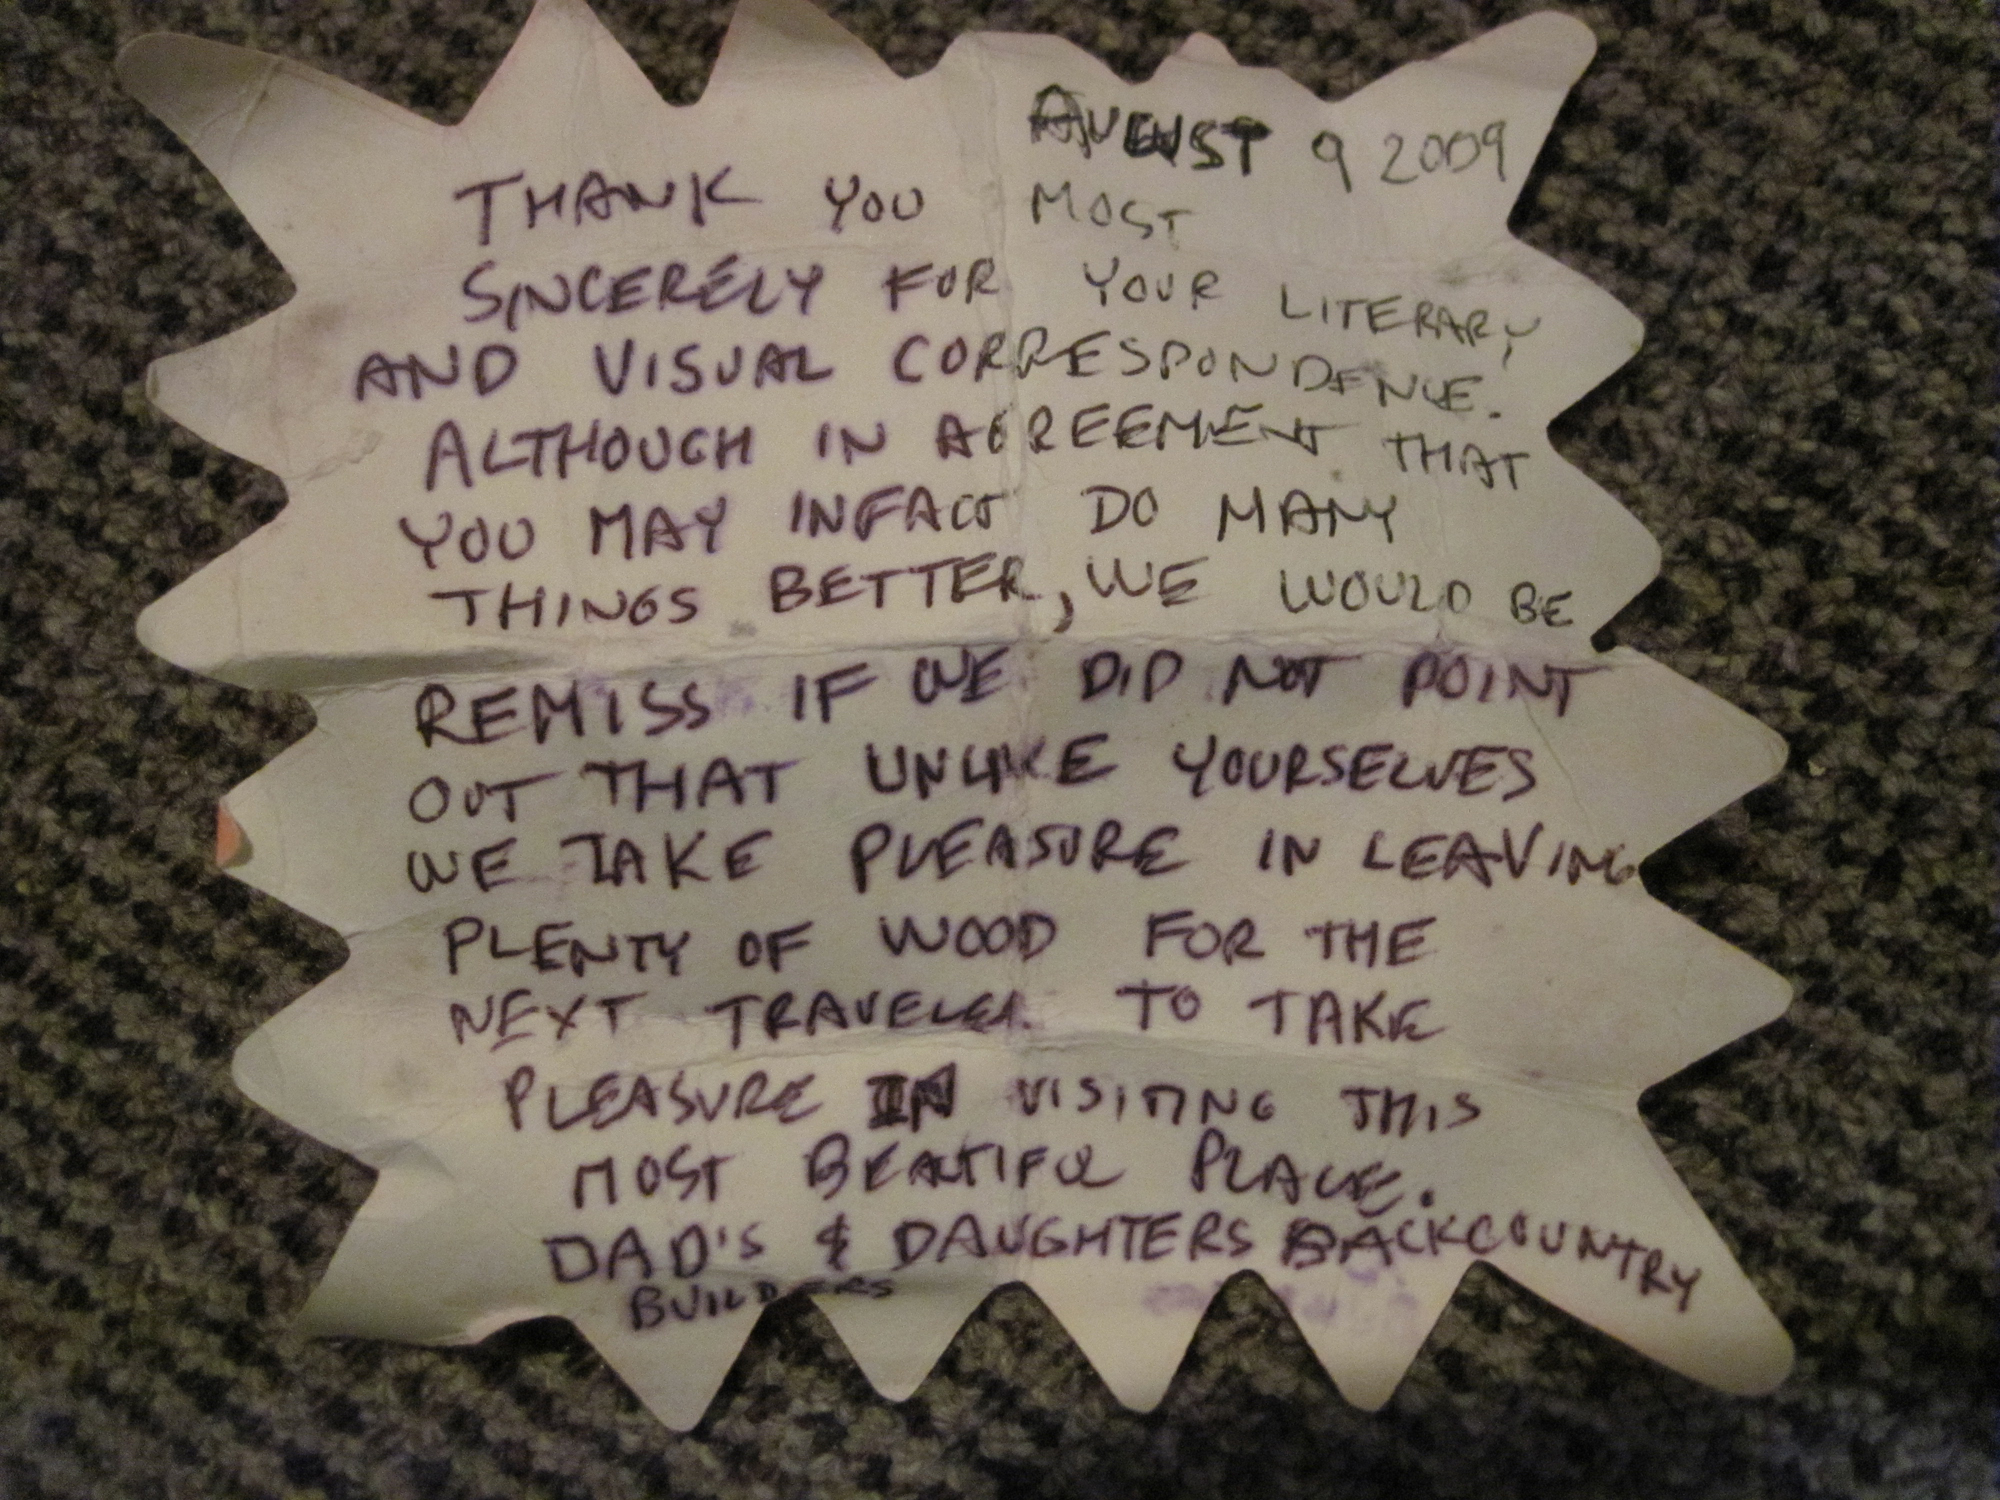 AUGUST 9 2009
THANK YOU MOST
SINCERELY FOR YOUR LITERARY
AND VISUAL CORRESPONDENCE.
ALTHOUGH IN AGREEMENT THAT
YOU MAY INFACT DO MANY
THINGS BETTER, WE WOULD BE
REMISS IF WE DID NOT POINT
OUT THAT UNLIKE YOURSELVES
WE TAKE PLEASURE IN LEAVING
PLENTY OF WOOD FOR THE
NEXT TRAVELER TO TAKE
PLEASURE IN VISITING THIS
MOST BEAUTIFUL PLACE.
DAD'S & DAUGHTERS BACKCOUNTRY
BUILDERS